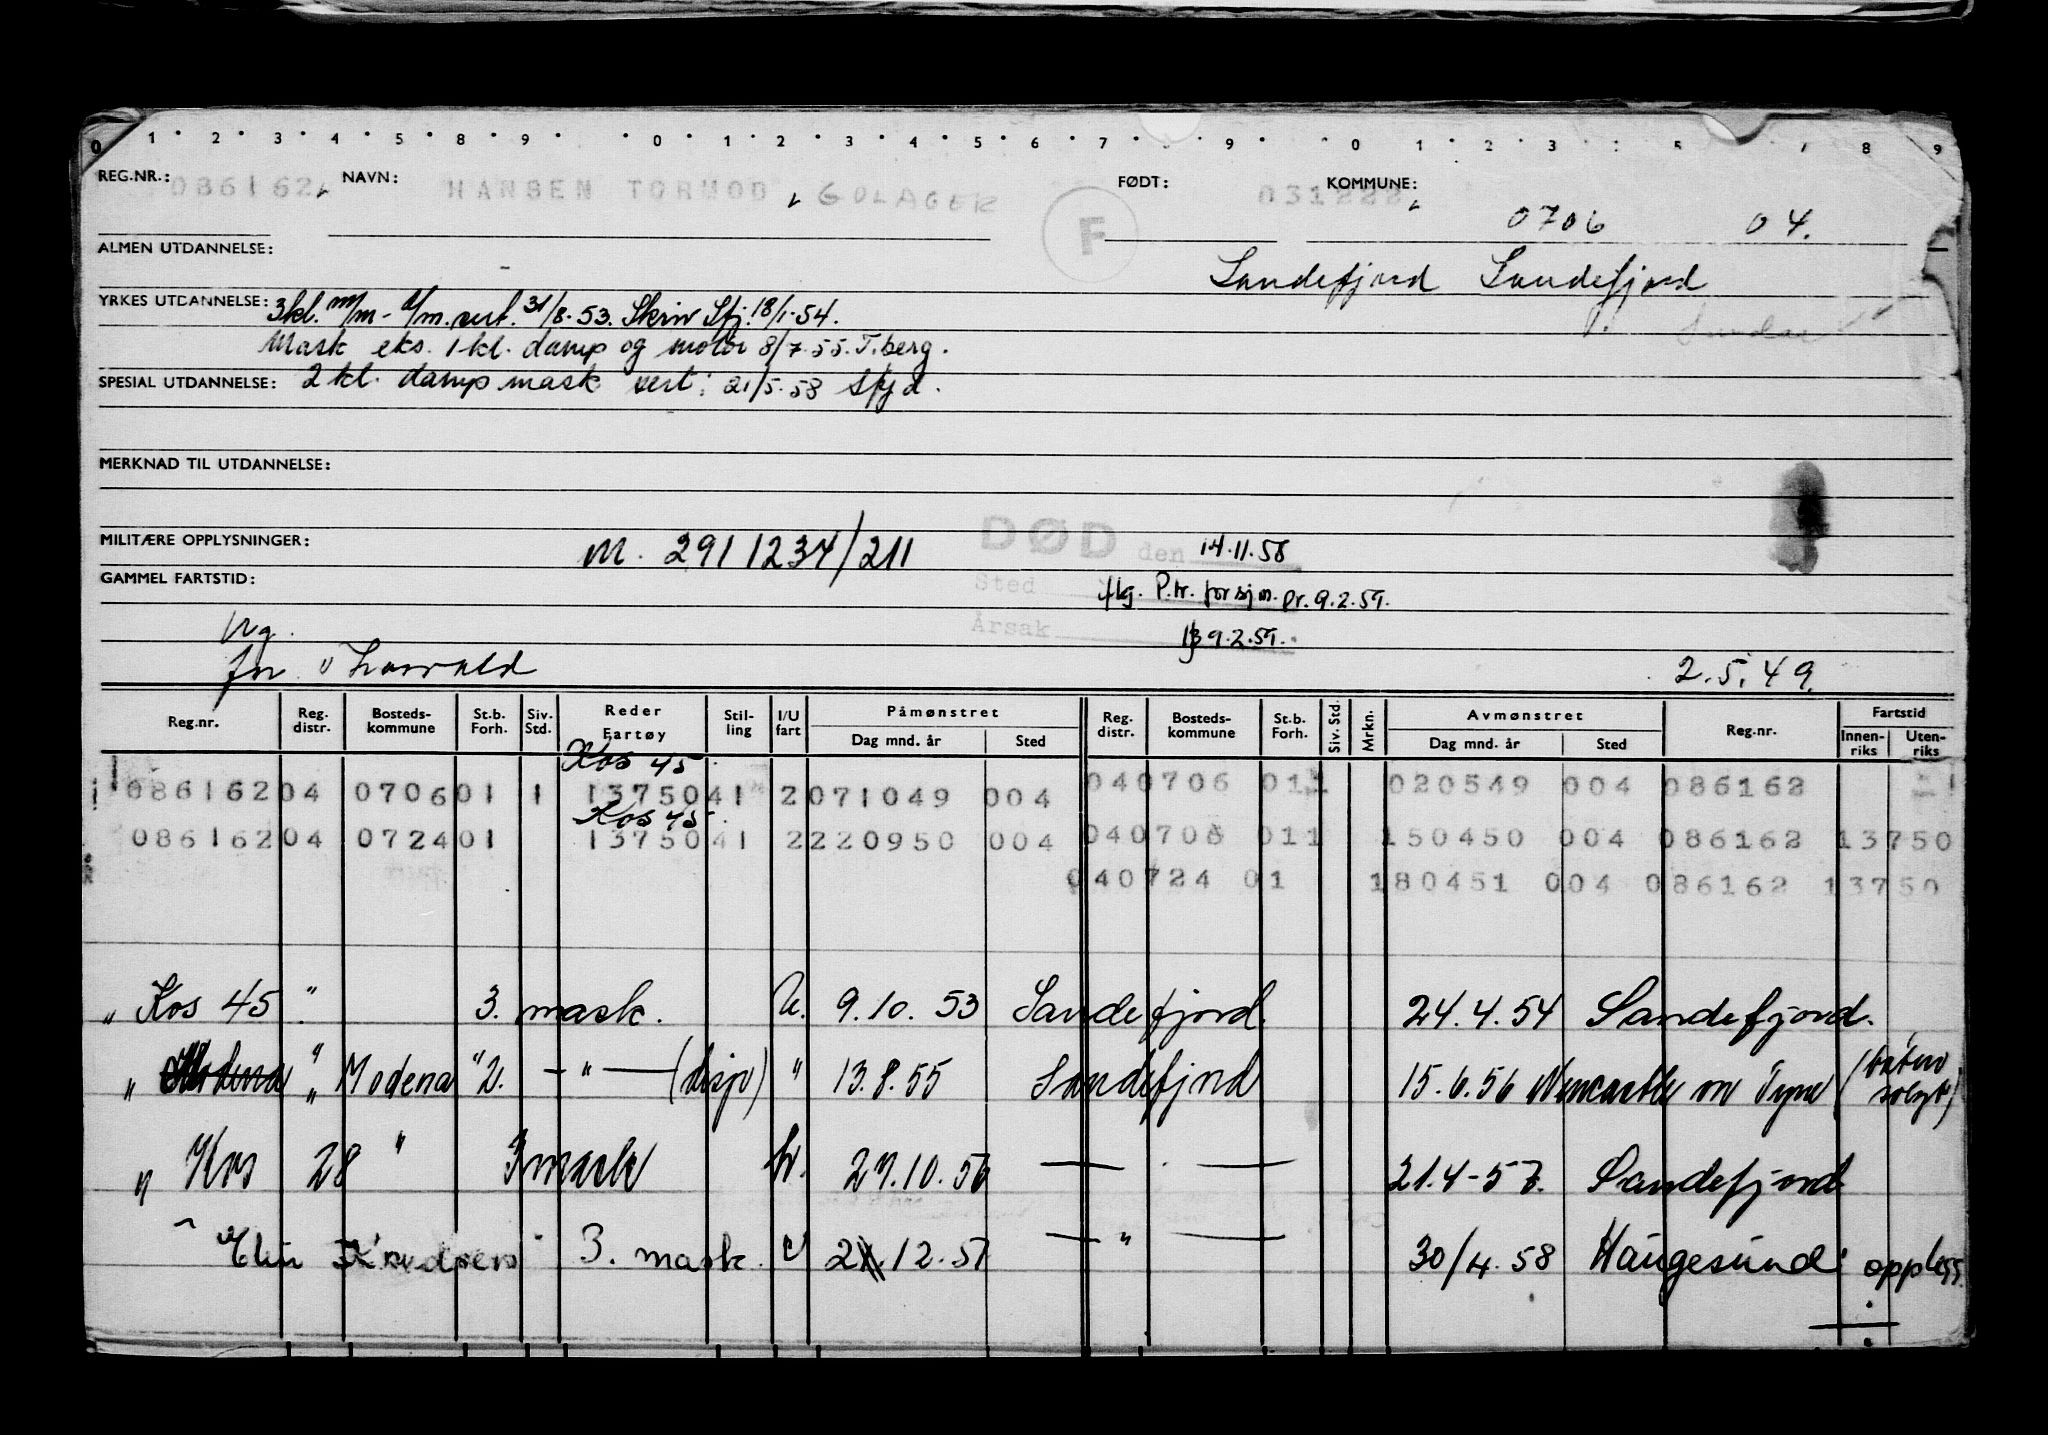 0 1 2 3 4 5 6 8 9 0 1 2 3 4 5 6 7 9 0 1 2 3 5 7 8 9
REG.NR.: 086162 NAVN: HANSEN TORMOD, GOLAGER F FØDT: 031222 KOMMUNE: 0706 04.
ALMEN UTDANNELSE: Sandefjord Sandefjord
YRKES UTDANNELSE: 3kl. m/m - sert. 31/8-53. Skriv Sfj. 18/1-54.
Mask eks. 1 kl. damp og motor 8/7-55. T.berg.
SPESIAL UTDANNELSE: 2 kl. damp mask sert: 21/5-58 Sfjd.
MERKNAD TIL UTDANNELSE:
MILITÆRE OPPLYSNINGER: M. 2911234/211 DØD den 14.11.58
GAMMEL FARTSTID: Sted flg. P.tr. for sjm. pr. 9.2.59.
Årsak 9.2.59.
2.5.49.
Reg.nr. Reg. distr. Bosteds- kommune St.b. Forh. Siv. Std. Reder Fartøy Stil- ling I/U fart Påmønstret Dag mnd. år Sted Reg. distr. Bosteds- kommune St.b. Forh. Siv. Std. Mrkn. Avmønstret Dag mnd. år Sted Reg.nr. Fartstid Innen- riks Uten- riks
Kos 45
086162 04 0706 01 1 13750 41 2 071049 004 040706 011 020549 004 086162
Kos 45
086162 04 0724 01 13750 41 2 220950 004 040706 011 150450 004 086162 13750
040724 01 180451 004 086162 13750
" Kos 45 " 3. mask. U. 9.10.53 Sandefjord. 24.4.54 Sandefjord.
" " Modena " 2. - " - (disp) " 13.8.55 Sandefjord 15.6.56 Newcastle on Tyne (båten solgt)
" Kos 28 " 3 mask 27.10.56 — — 21.4-57. Sandefjord
" Elin Knudsen " 3. mask U 12.57 — " — 30/4.58 Haugesund oppless.